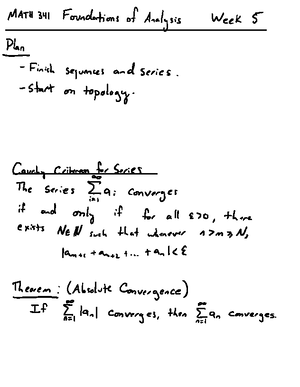 MATH 341 Foundations of Analysis Week 5
Plan
- Finish sequences and series.
- Start on topology.
Cauchy Criterion for Series
The series ∑_{i=1}^∞ a_i converges
if and only if for all ε>0, there
exists N∈ℕ such that whenever n>m≥N,
|a_{m+1} + a_{m+2} + ... + a_n| < ε
Theorem: (Absolute Convergence)
If ∑_{n=1}^∞ |a_n| converges, then ∑_{n=1}^∞ a_n converges.